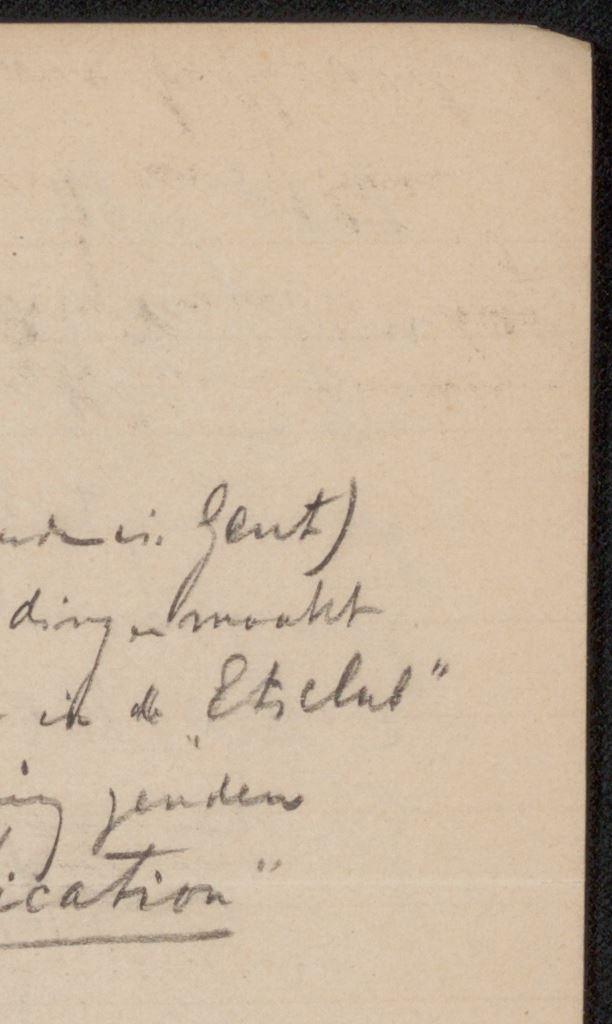 in Gent)
dingen maakt
in de "Etsclub"
zenden
ication"